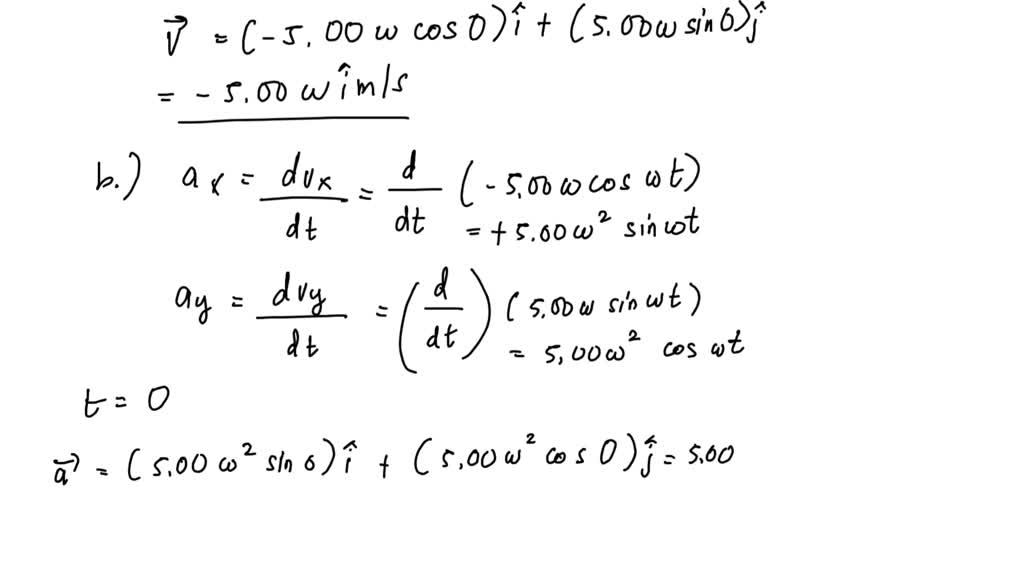 v⃗ = (-5.00 ω cos 0) î + (5.00 ω sin 0) ĵ
= - 5.00 ω î m/s
b.) ax = dvx/dt = d/dt (-5.00 ω cos ωt)
= +5.00 ω² sin ωt
ay = dvy/dt = (d/dt) (5.00 ω sin ωt)
= 5.00 ω² cos ωt
t = 0
a⃗ = (5.00 ω² sin 0) î + (5.00 ω² cos 0) ĵ = 5.00